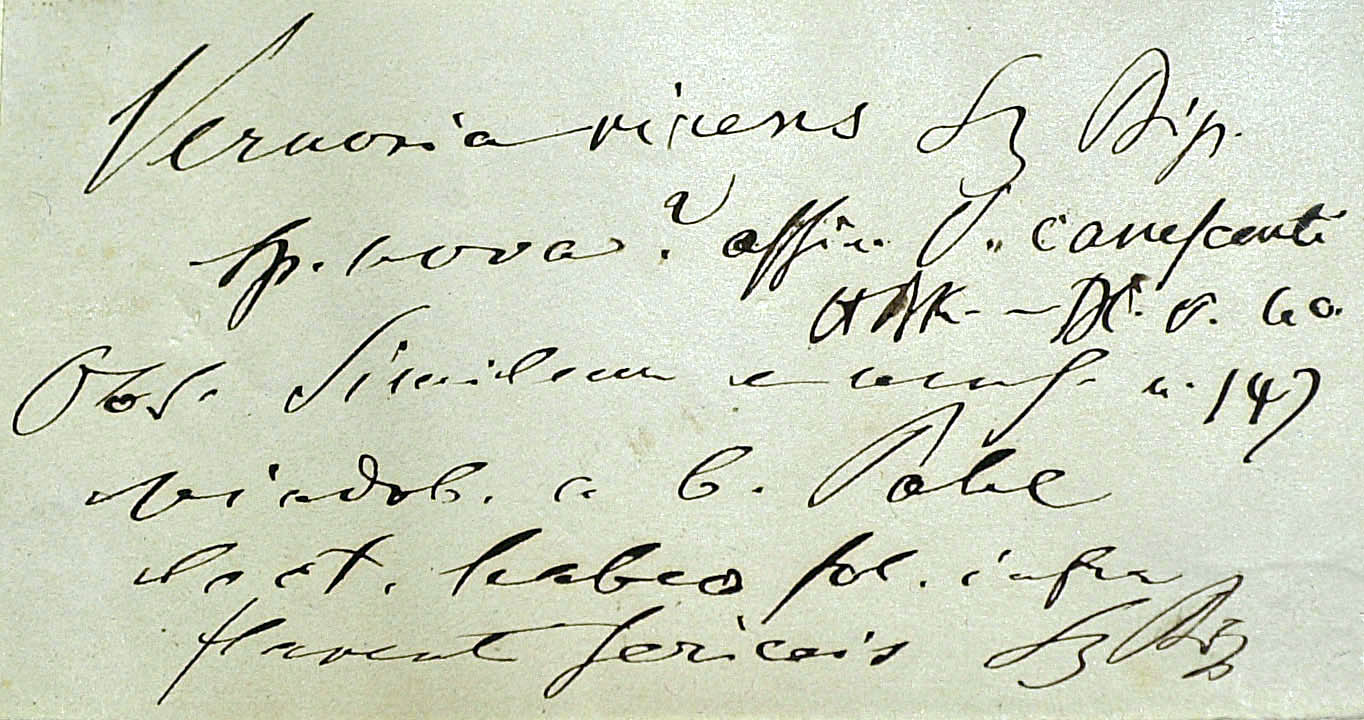 Vernonia virens Sz Bip.
sp. nova? affin. V. canescenti
HBK. — DC. v. no.
Obs. Similem e mus. n. 147
vindob. a b. Pohl
lect. habeo fol. infra
flavent sericeis Sz Bip